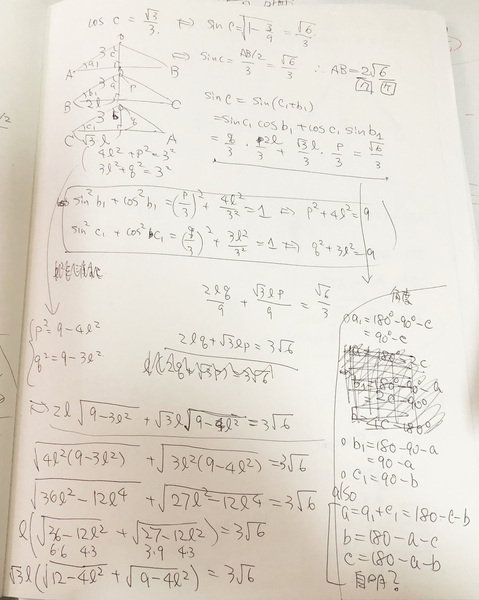 cos C = √3/3 ⇔ sin C = √(1-3/9) = √6/3
⇔ sin C = (AB/2)/3 = √6/3 ∴ AB = 2√6
A 3 a₁ B
B 3 b₁ 2l P C
C 3 c₁ √3 l b q A
sin C = sin(C₁+b₁)
= sin c₁ cos b₁ + cos c₁ sin b₁
= q/3 · 2l/3 + √3l/3 · P/3 = √6/3
4l² + p² = 3²
3l² + q² = 3²
sin² b₁ + cos² b₁ = (P/3)² + 4l²/3² = 1 ⇔ p² + 4l² = 9
sin² c₁ + cos² c₁ = (q/3)² + 3l²/3² = 1 ⇔ q² + 3l² = 9
2lq/9 + √3lp/9 = √6/3
2lq + √3lp = 3√6
p² = 9 - 4l²
q² = 9 - 3l²
⇒ 2l√(9-3l²) + √3l√(9-4l²) = 3√6
√(4l²(9-3l²)) + √(3l²(9-4l²)) = 3√6
√(36l²-12l⁴) + √(27l²-12l⁴) = 3√6
l(√(36-12l²) + √(27-12l²)) = 3√6
6·6 4·3 3·9 4·3
√3l(√(12-4l²) + √(9-4l²)) = 3√6
角度
a₁ = 180°-90°-c
= 90°-c
b₁ = 180-90-a
= 90-a
c₁ = 90-b
also
a = a₁+c₁ = 180-c-b
b = 180-a-c
c = 180-a-b